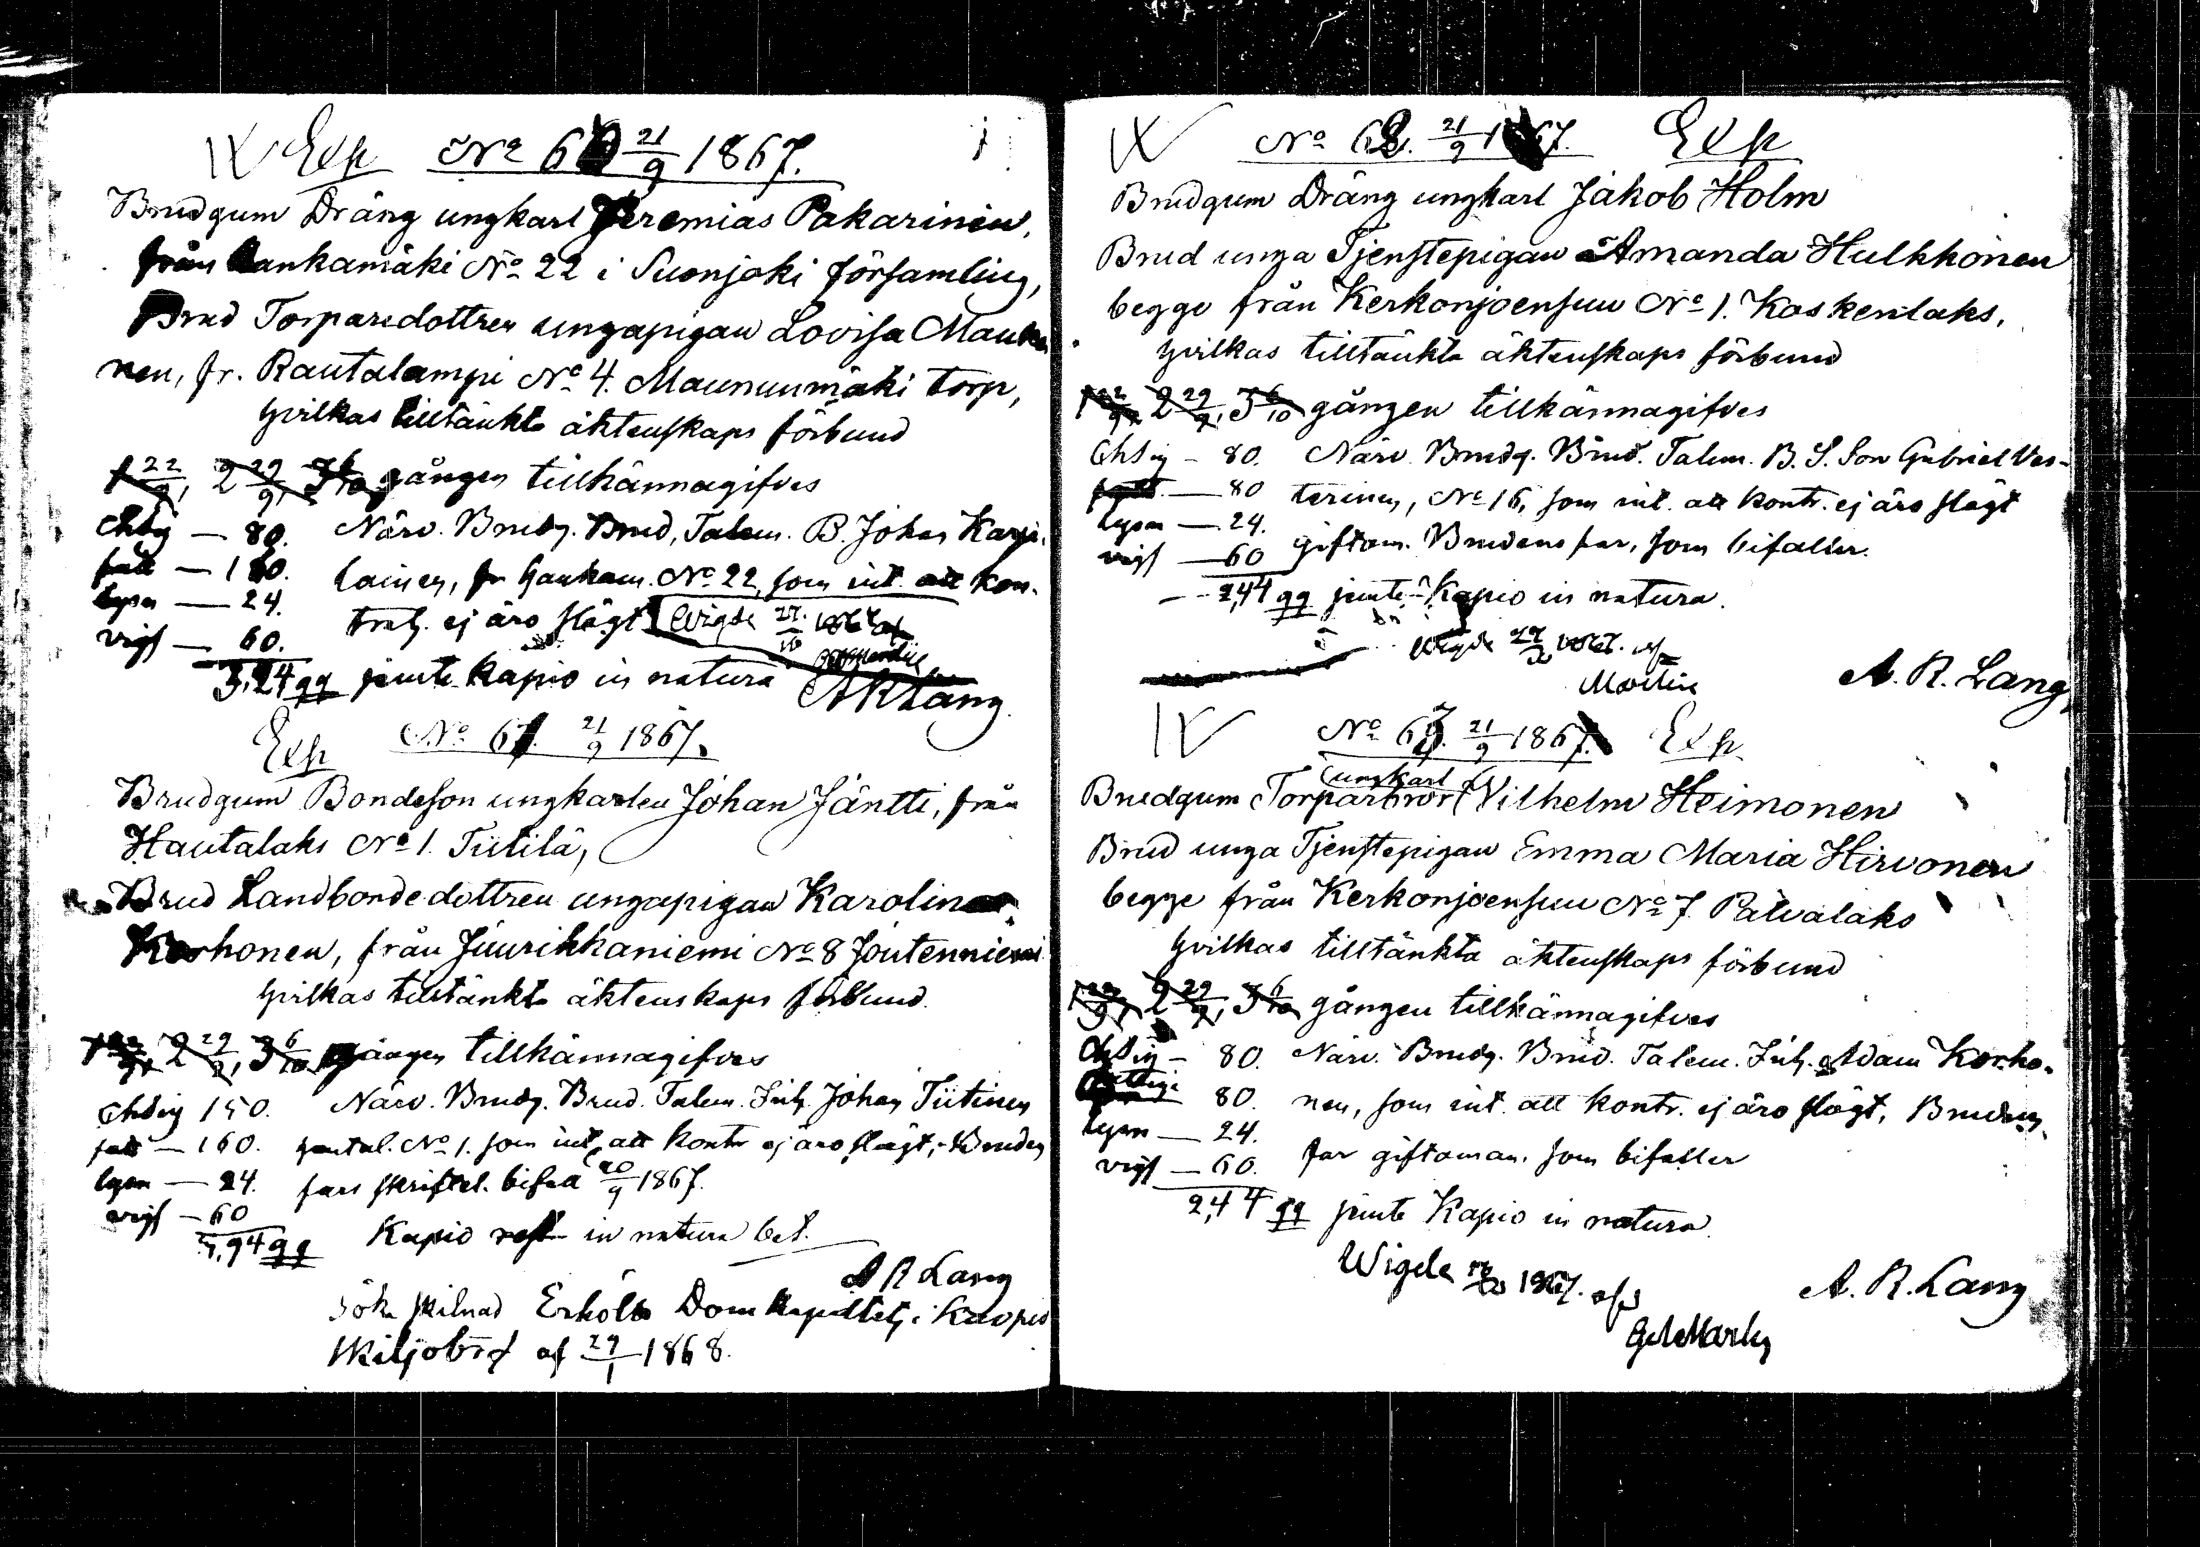 Exp No 60 21/9 1867.
Brudgum Dräng ungkarl Jeremias Pakarinen,
från Hankamäki No 22 i Suonjoki församling,
Brud Torparedottren ungapigan Lovisa Mauko
nen, fr. Rautalampi No 4. Maunuumäki torp,
hvilkas tilltänkta äktenskaps förbund
1 22/9, 2 29/9, 3 6/10 gången tillkännagifves
Chsig — 80. Närv. Brudg. Brud, Talem. B. Johan Karja-
fatt — 160. lainen, fr Hankam. No 22, som int. att kon-
lysn — 24. trah. ej äro slägt Wigde 27/10 1867 af
vigs — 60.
3,24 qq jemte kapio in natura
A R Lang.
Exp No 61. 21/9 1867.
Brudgum Bondeson ungkarlen Johan Jäntti, från
Hautalaks No 1. Tiitilä,
Brud Landbondedottren ungapigan Karolina
Korhonen, från Juurikkaniemi No 8 Joutenniemi
hvilkas tilltänkta äktenskaps förbund.
1 22/9, 2 29/9, 3 6/10 gången tillkännagifves
Chsig 150. Närv. Brudg. Brud. Talem. Inh. Johan Tiitinen
fatt — 160. hautal. No 1. som int. att kontr ej äro slägt, Bruden
lysn — 24. fars skriftel. bifall 20/9 1867.
vigs — 60
3,94 qq Kapio in natura bet.
A R Lang
Söka skilnad Erhöll Domkapitlets i Kuopio
skiljobref af 29/1 1868.
No 62. 21/9 1867. Exp
Brudgum Dräng ungkarl Jakob Holm
Brud unga Tjenstepigan Amanda Hulkkonen
begge från Kerkonjoensuu No 1. Koskenlaks,
hvilkas tilltänkta äktenskaps förbund
1 22/9, 2 29/9, 3 6/10 gången tillkännagifves
Chsig — 80. Närv. Brudg. Brud. Talem. B. S. Son Gabriel Ves-
fatt — 80 terinen, No 16, som int. att kontr. ej äro slägt
lysn — 24. giftom. Brudens far, som bifaller.
vigs — 60
2,44 qq jemte Kapio in natura.
Wigde 27/10 1867. af
A. R. Lang
No 63. 21/9 1867. Exp
ungkarl
Brudgum Torparbror Wilhelm Heimonen
Brud unga Tjenstepigan Emma Maria Hirvonen
begge från Kerkonjoensuu No 7. Patvalaks
hvilkas tilltänkta äktenskaps förbund
1 22/9, 2 29/9, 3 6/10 gången tillkännagifves
Chsig — 80. Närv. Brudg. Brud. Talem. Inh. Adam Korho-
80. nen, som int. att kontr. ej äro slägt, Brudens
lysn — 24. far giftoman, som bifaller
vigs — 60.
2,44 qq jemte Kapio in natura.
Wigde 1867. af
A. R. Lang